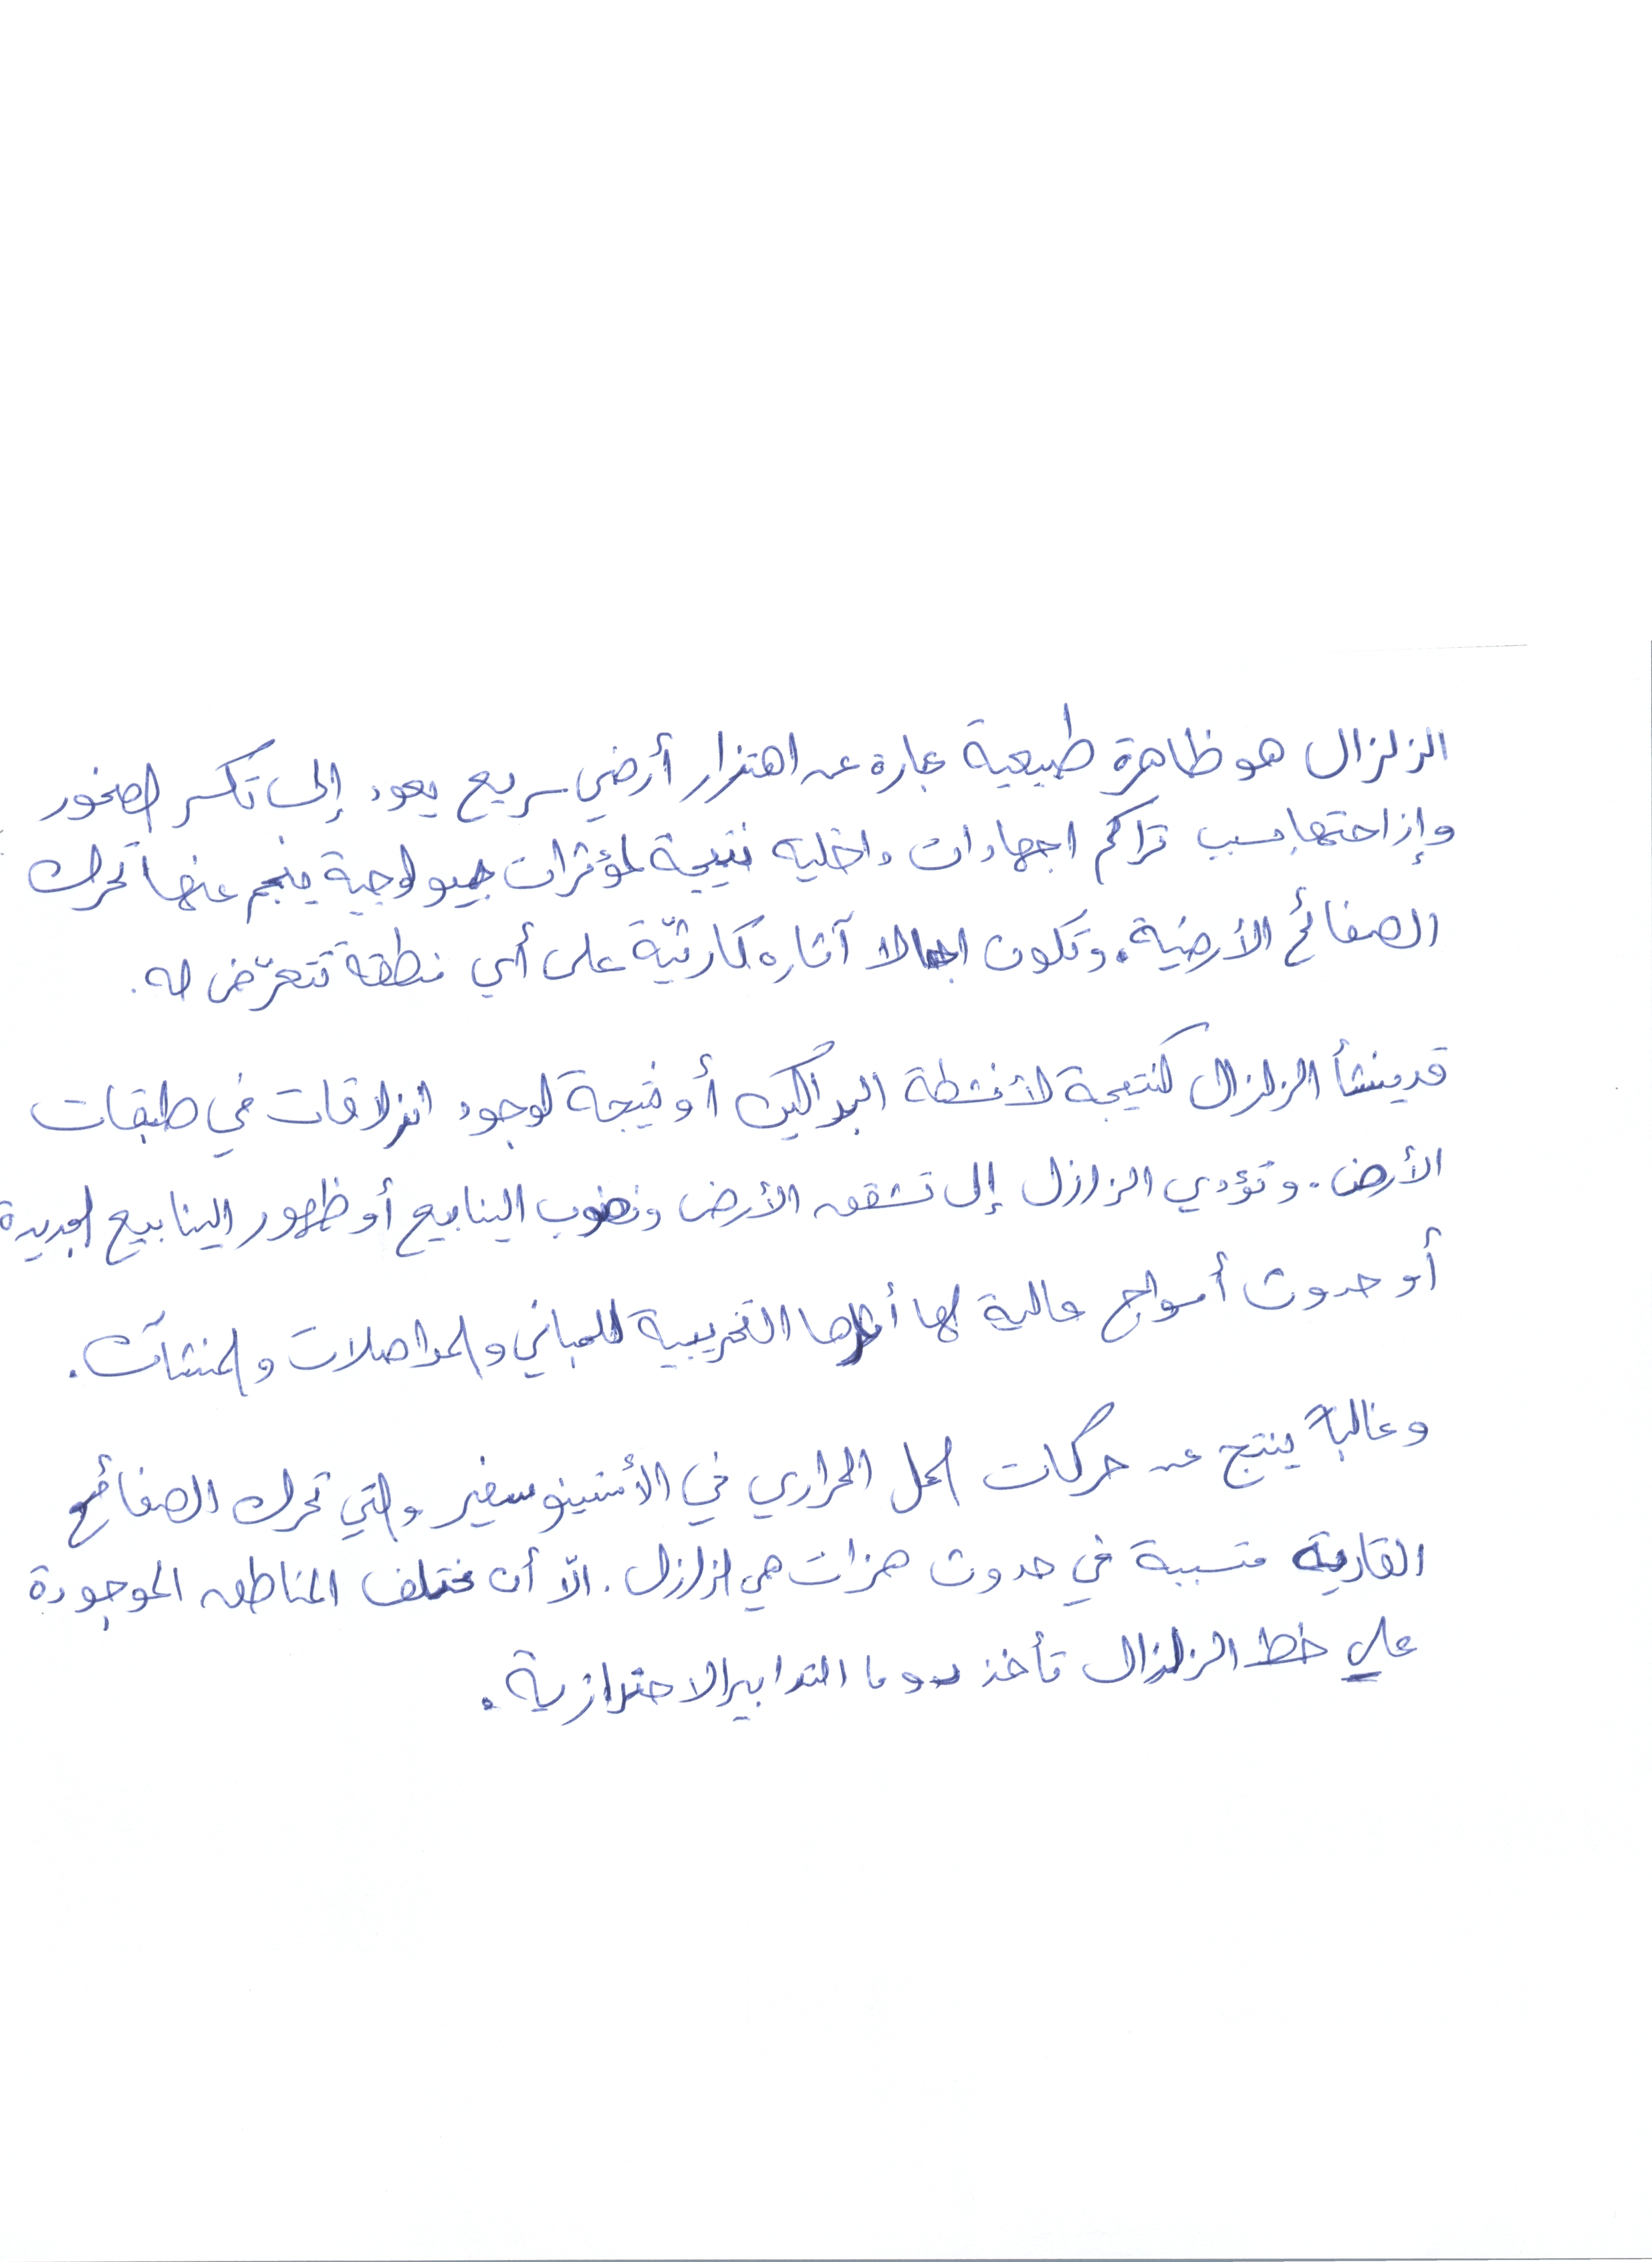 الزلزال هو ظاهرة طبيعية عبارة عن اهتزاز أرضي سريع يعود إلى تكسر الصخور
وإزاحتها بسبب تراكم اجهادات داخلية نتيجة لمؤثرات جيولوجية ينجم عنها تحرك
الصفائح الأرضية. وتكون اجمالا آثاره كارثيّة على أي منطقة تتعرّض له.
قد ينشأ الزلزال كنتيجة لأنشطة البراكين أو نتيجة لوجود انزلاقات في طبقات
الأرض. وتؤدي الزلازل إلى تشقق الأرض ونضوب الينابيع أو ظهور الينابيع الجديدة
أو حدوث أمواج عالية لها أثارها التخريبية للمباني والمواصلات والمنشآت.
وغالباً ينتج عن حركات الحمل الحراري في الأستينوسفير والتي تحرك الصفائح
القارية متسببة في حدوث هزات هي الزلازل. الّا أن مختلف المناطق الموجودة
على خط الزلزال تأخذ دوما التدابير الاحترازية.